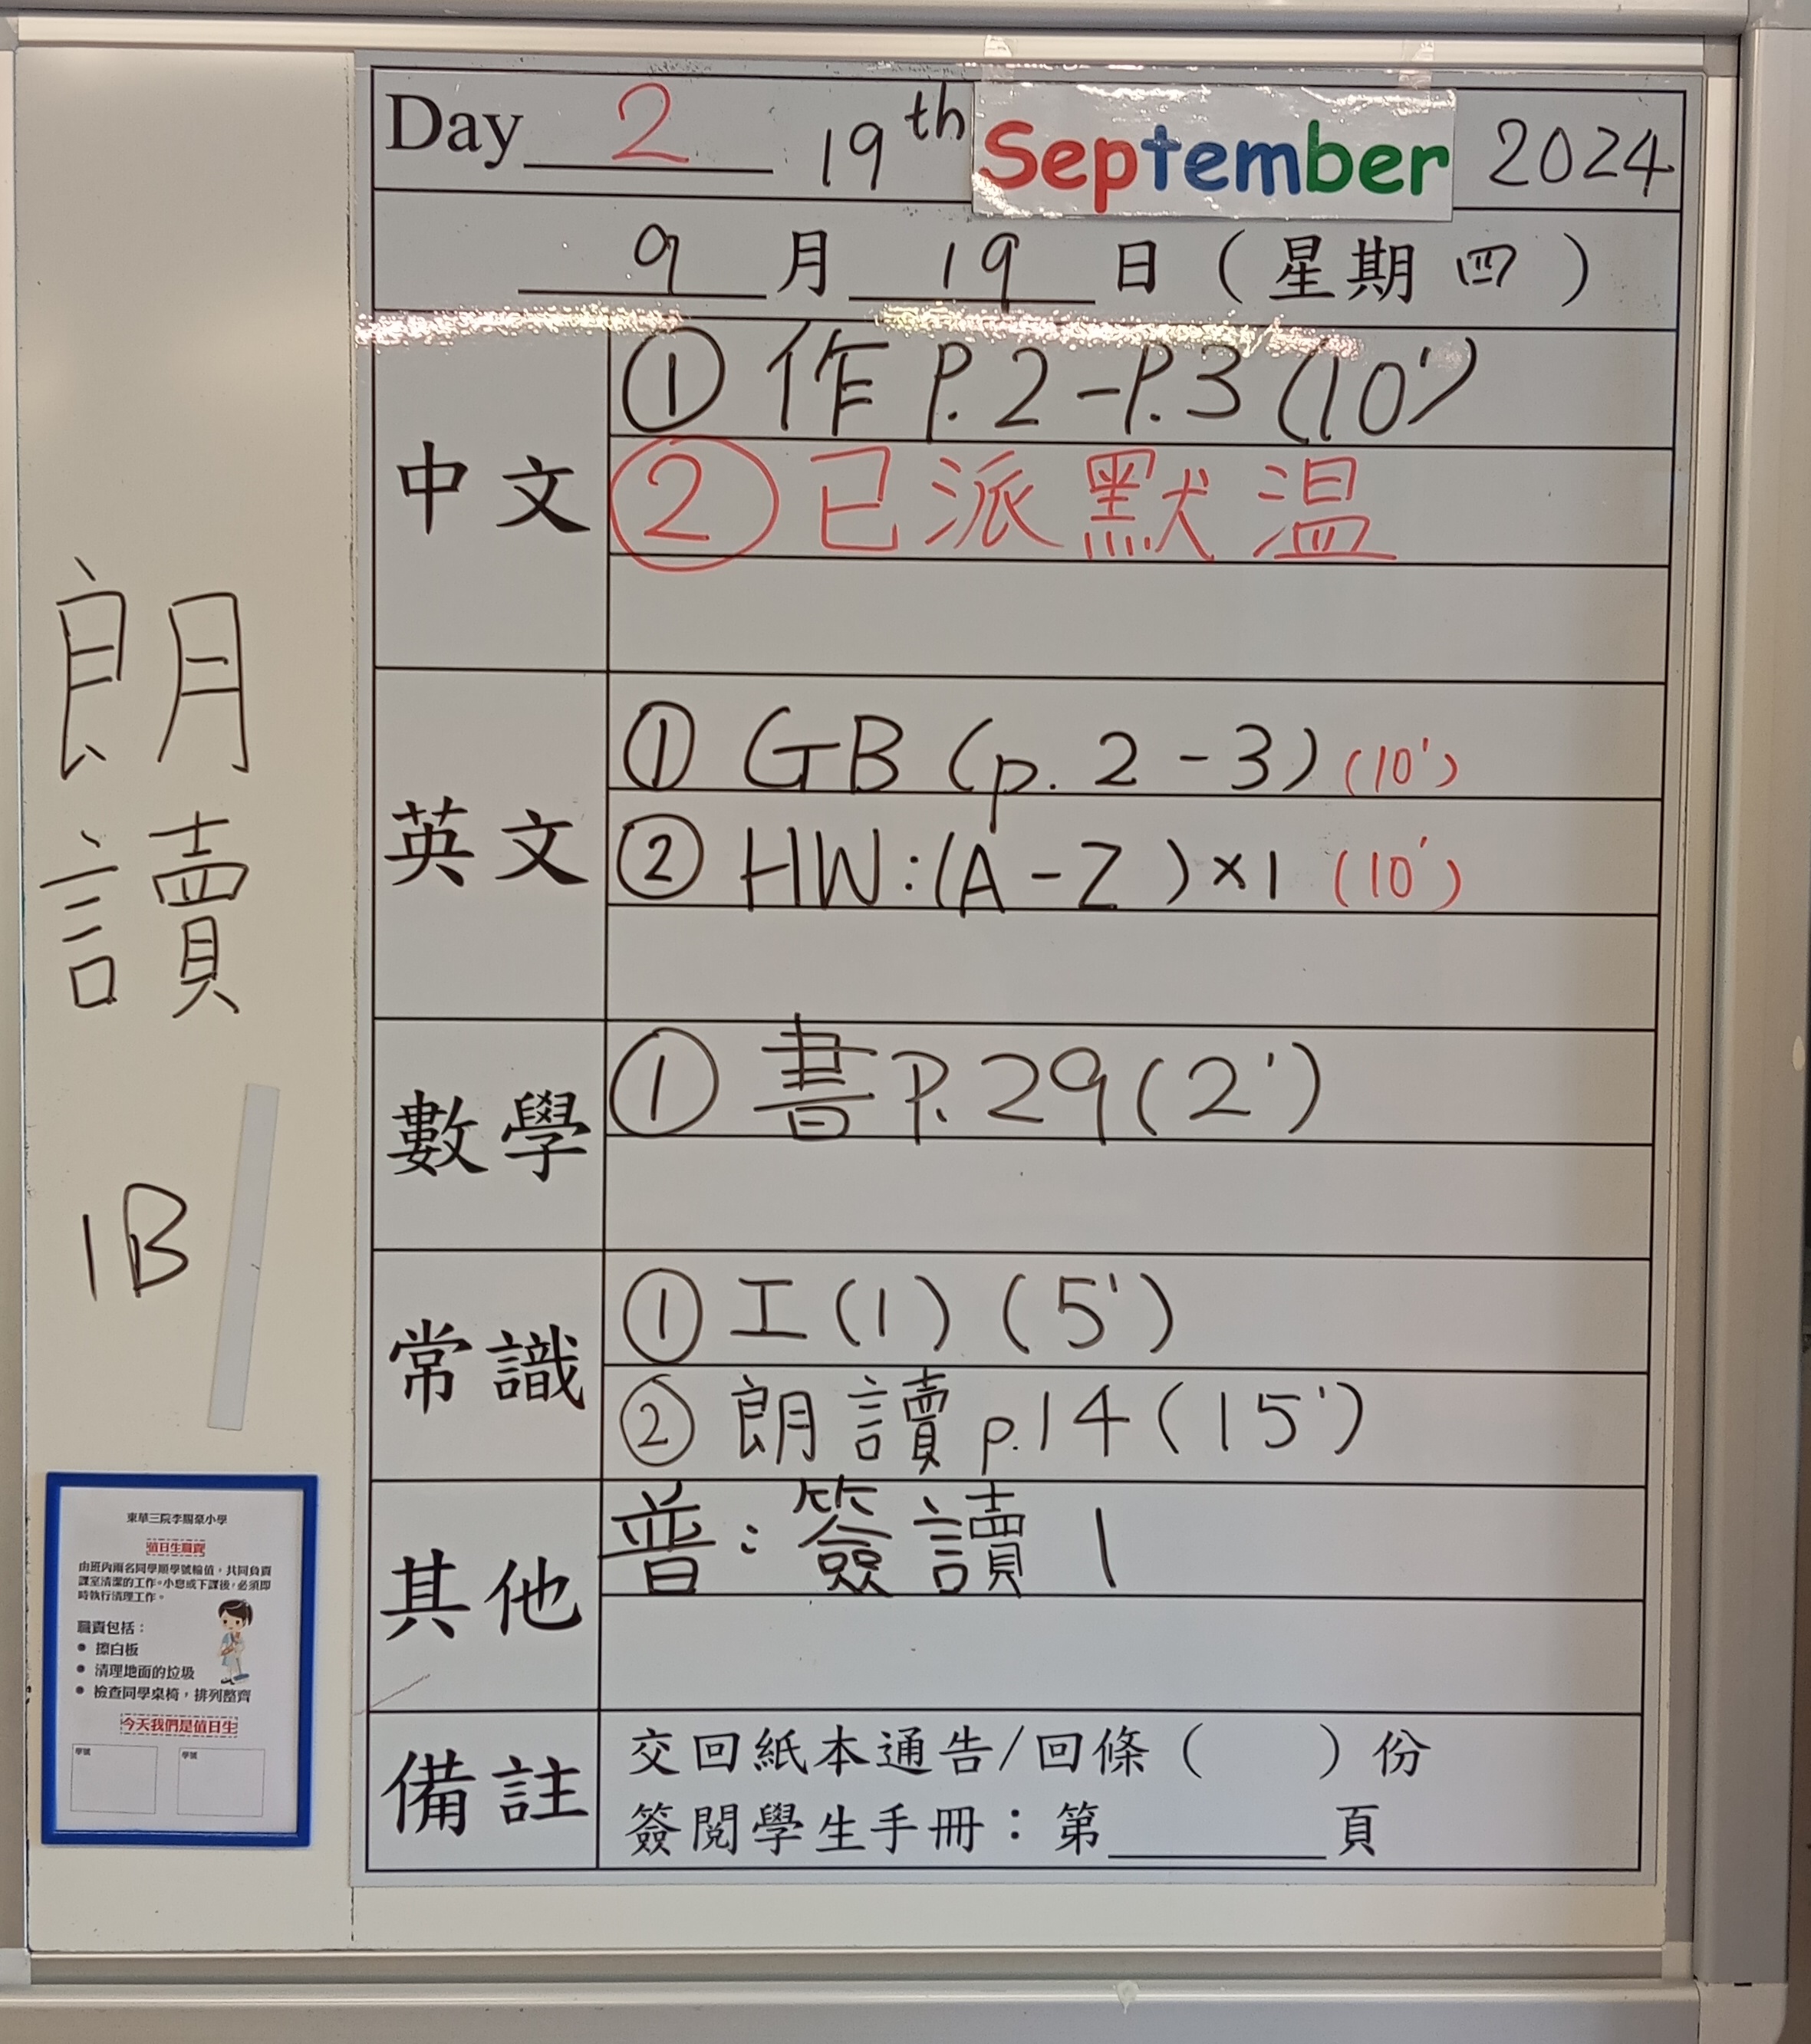 Day 2 19th September 2024
9 月 19 日 ( 星期 四 )
中文
① 作 P.2-P.3 (10')
② 已派默溫
英文
① GB (p. 2 - 3) (10')
② HW: (A - Z) × 1 (10')
數學
① 書 P.29 (2')
常識
① 工(1) (5')
② 朗讀 p.14 (15')
其他
普：簽讀 1
備註
交回紙本通告/回條（　　）份
簽閱學生手冊：第＿＿＿＿頁
朗讀
1B
東華三院李賜豪小學
值日生職責
由班內兩名同學順學號輪值，共同負責
課室清潔的工作。小息或下課後，必須即
時執行清理工作。
職責包括：
• 擦白板
• 清理地面的垃圾
• 檢查同學桌椅，排列整齊
今天我們是值日生
學號 學號